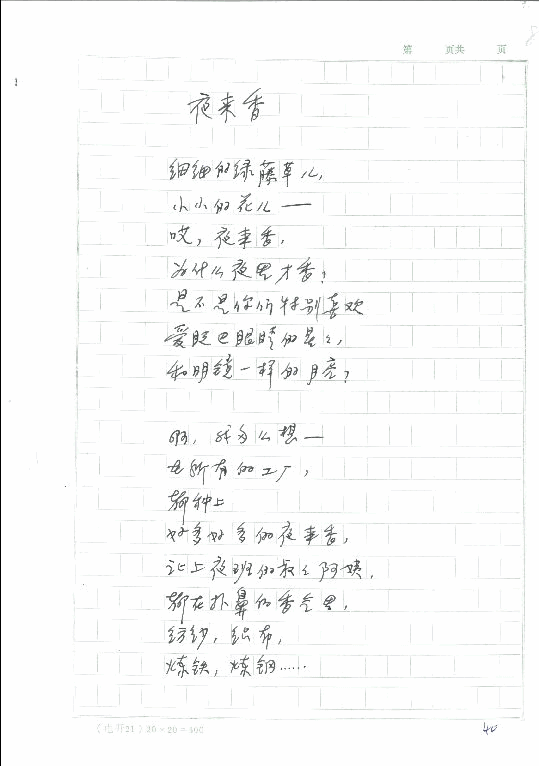 第 页共 页
夜来香
细细的绿藤草儿,
小小的花儿——
哎,夜来香,
为什么夜里才香?
是不是你们特别喜欢
爱眨巴眼睛的星星,
和明镜一样的月亮?
啊,我多么想——
在所有的工厂,
都种上
好多好多的夜来香,
让上夜班的叔叔阿姨,
都在扑鼻的香气里,
纺纱,织布,
炼铁,炼钢……
20×20=400
40